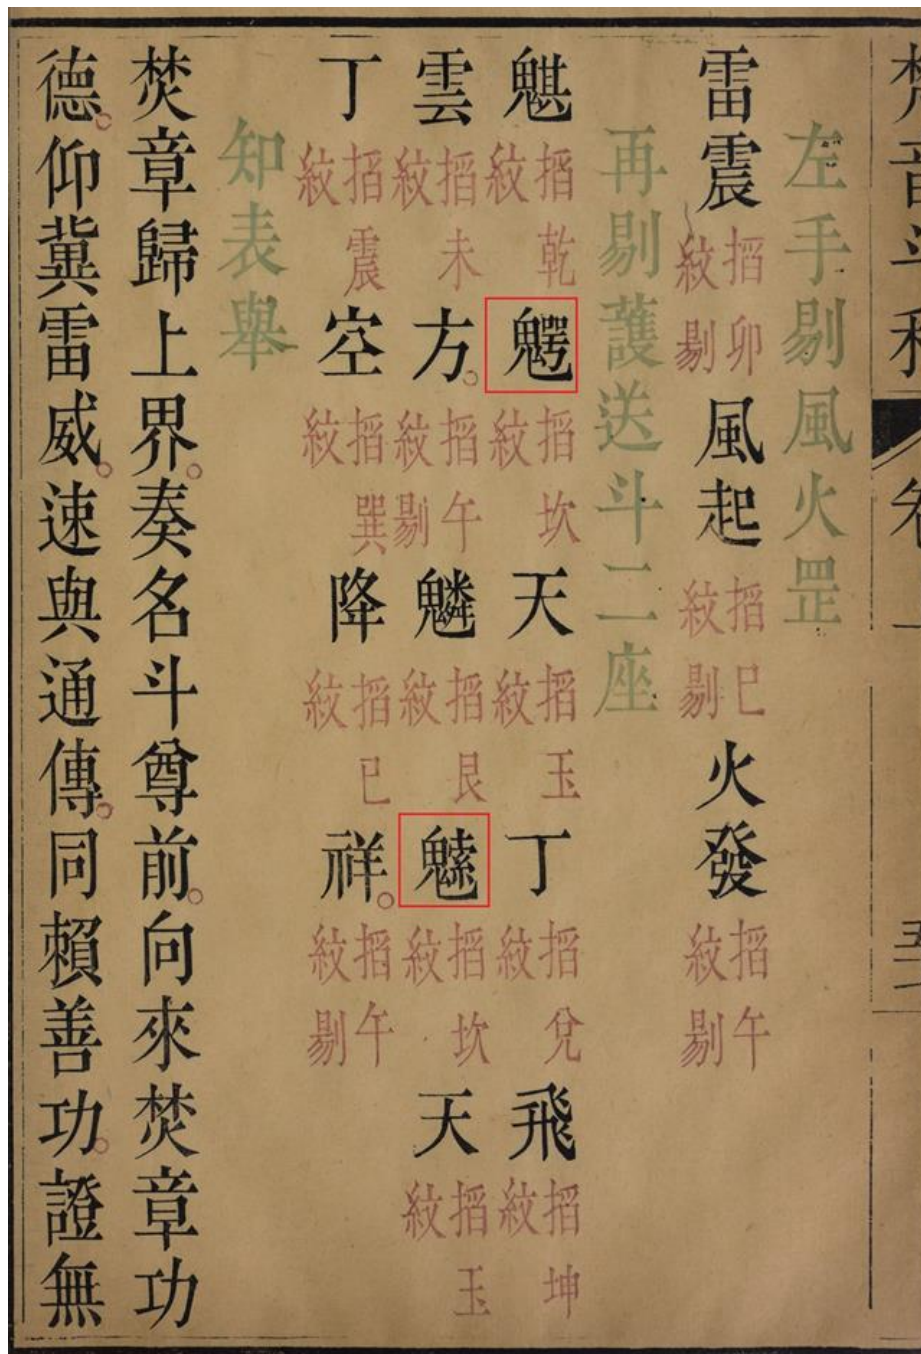 梵音斗科 卷一
左手剔風火罡
雷震搯卯紋剔風起搯巳紋剔火發搯午紋剔
再剔護送斗二座
魌搯乾紋搯坎紋天搯玉紋丁搯兌紋飛搯坤紋
雲搯未紋方。搯午紋剔搯艮紋搯坎紋天搯玉紋
丁搯震紋空搯巽紋降搯巳紋祥。搯午紋剔
知表舉
焚章歸上界。奏名斗尊前。向來焚章功
德。仰冀雷威。速與通傳。同賴善功。證無